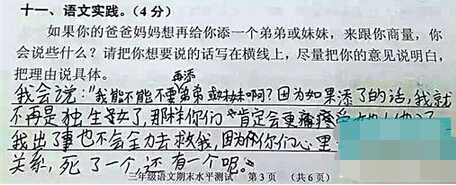 十一、语文实践。(4分)
如果你的爸爸妈妈想再给你添一个弟弟或妹妹，来跟你商量，你
会说些什么？请把你想要说的话写在横线上，尽量把你的意见说明白，
把理由说具体。
再添
我会说："我能不能不要弟弟或妹妹啊？因为如果添了的话，我就
不再是独生女了，那样你们肯定会更疼
我出了事也不会全力去救我，因为你们心里
关系，死了一个，还有一个呢。"
三年级语文期末水平测试 第3页 (共6页)